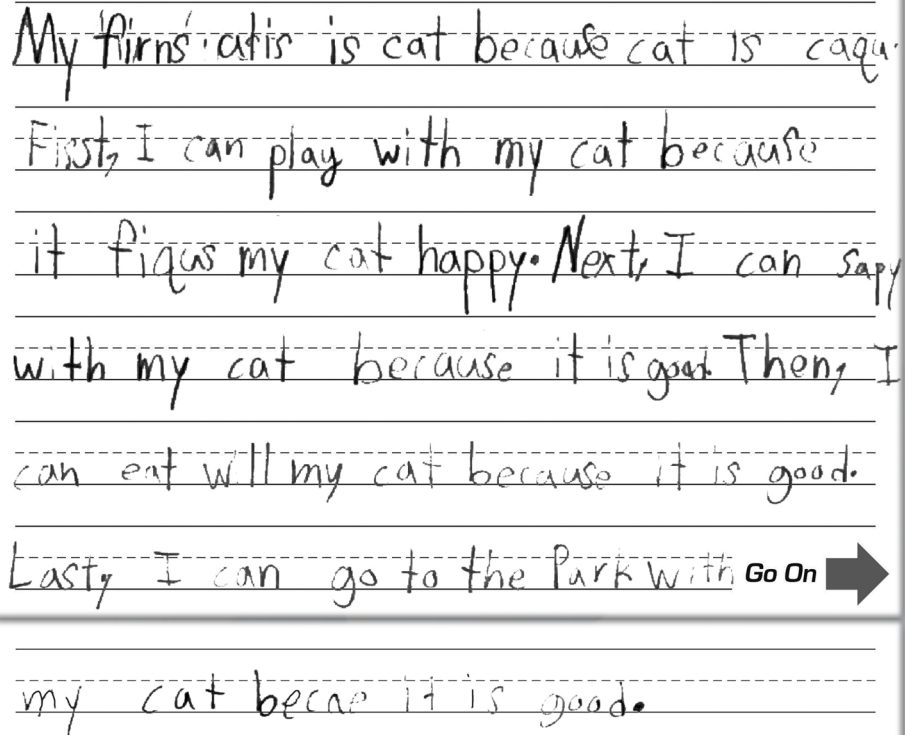 My firns atis is cat because cat is caqu
First, I can play with my cat because
it fiqus my cat happy. Next, I can sapy
with my cat because it is good. Then, I
can eat will my cat because it is good.
Last, I can go to the Park with Go On
my cat becae it is good.